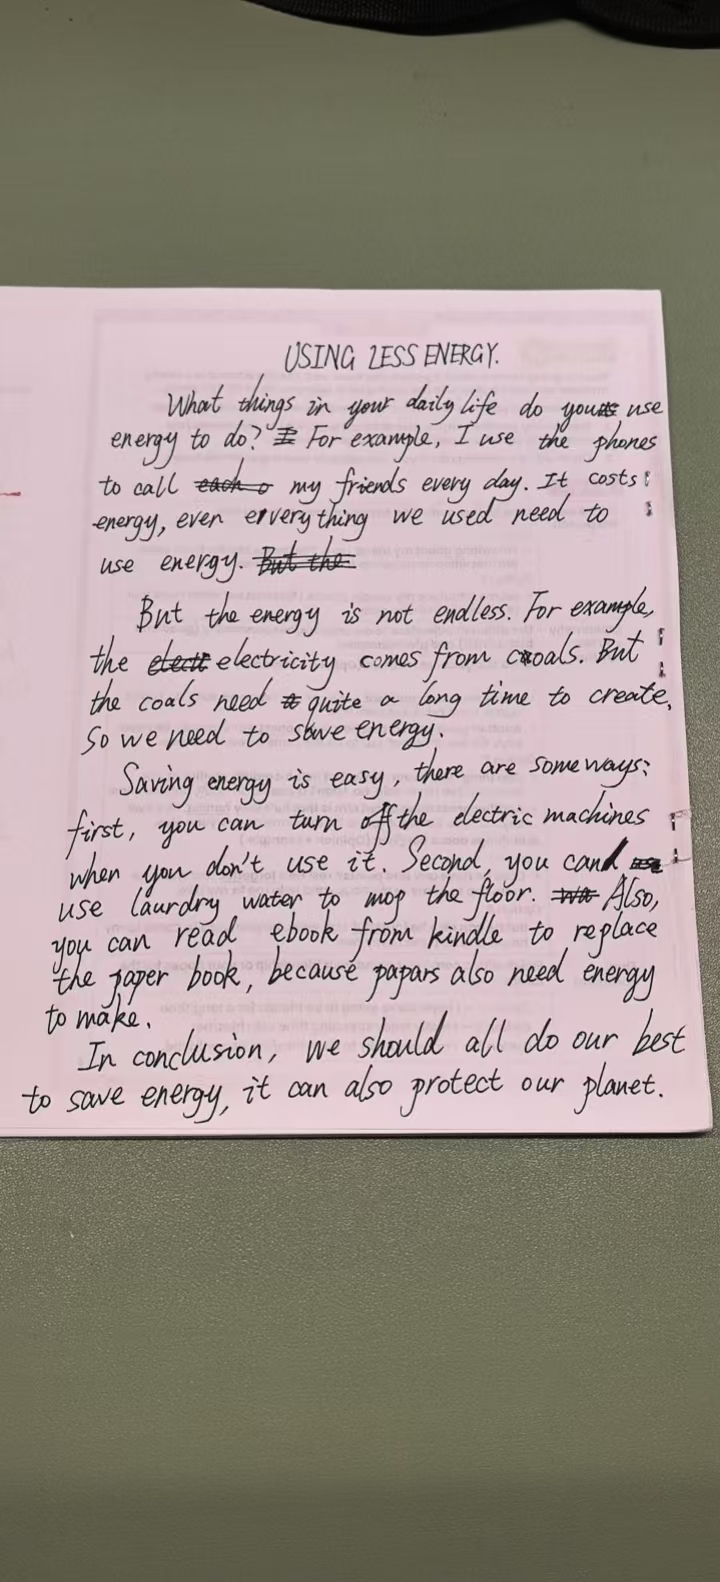 USING LESS ENERGY.
What things in your daily life do you use
energy to do? For example, I use the phones
to call my friends every day. It costs
energy, even erverything we used need to
use energy.
But the energy is not endless. For example,
the electricity comes from coals. But
the coals need quite a long time to create.
So we need to save energy.
Saving energy is easy, there are some ways:
first, you can turn off the electric machines
when you don't use it. Second, you can
use laurdry water to mop the floor. Also,
you can read ebook from kindle to replace
the paper book, because papars also need energy
to make.
In conclusion, we should all do our best
to save energy, it can also protect our planet.